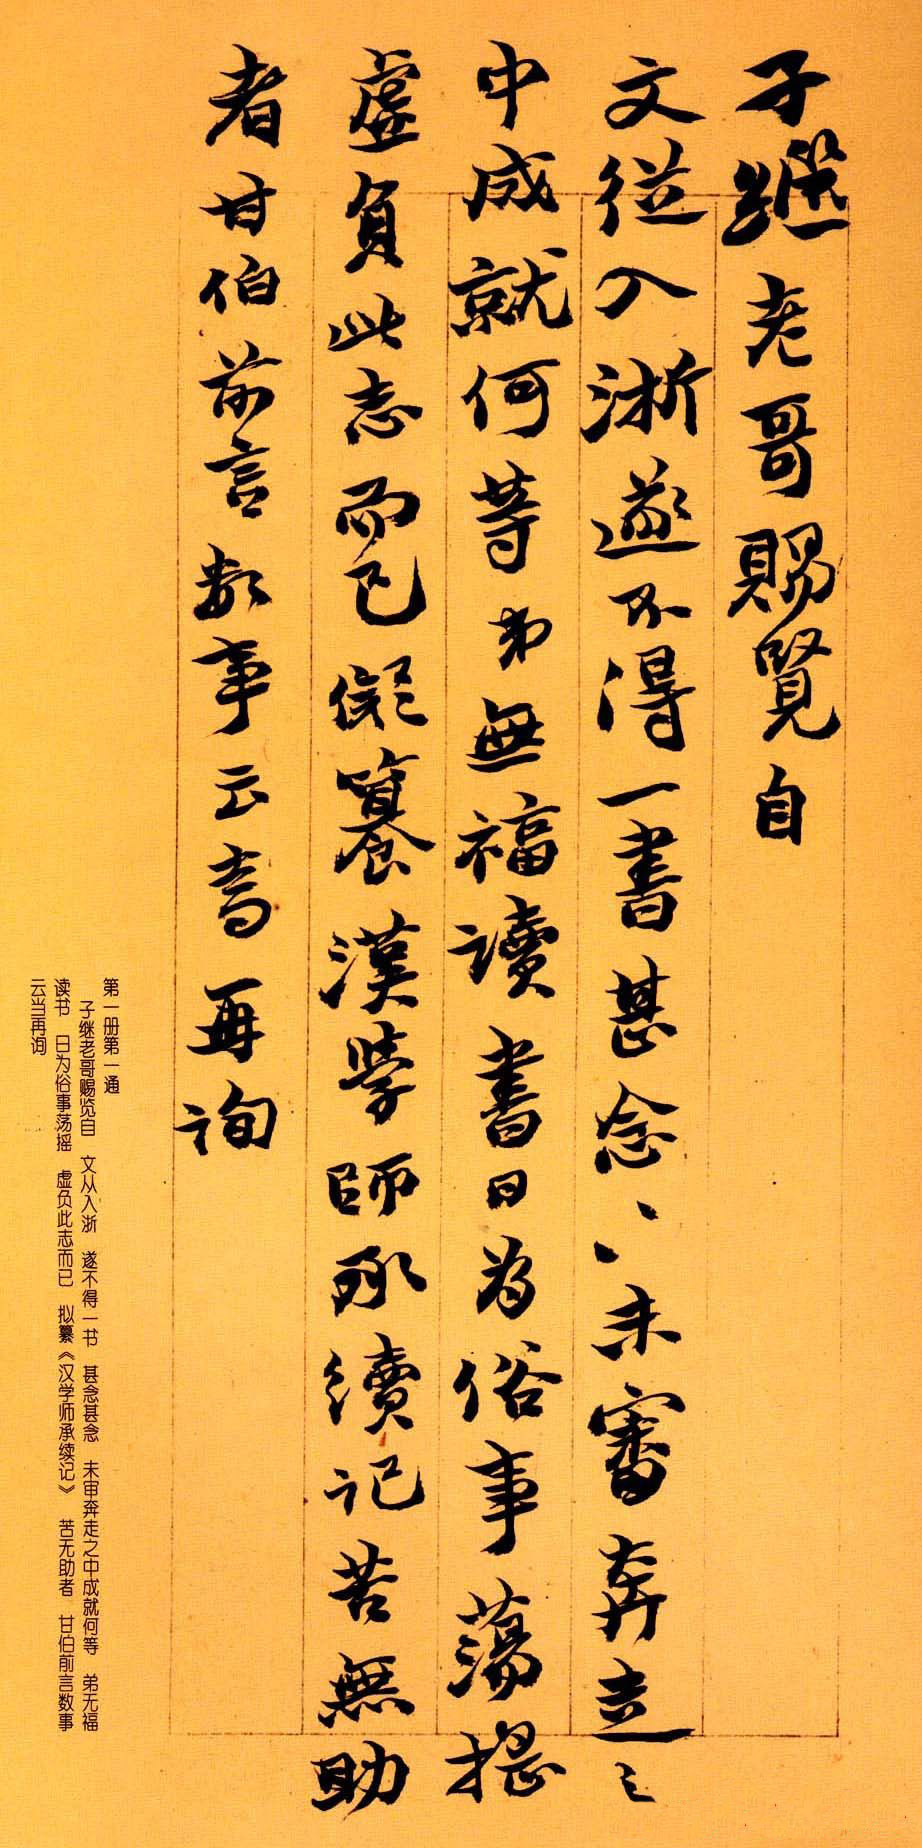 子繼老哥賜覽自
文從入浙遂不得一書甚念〻〻未審奔走之
中成就何等弟無福讀書日為俗事蕩搖
虛負此志而已儗籑漢學師承續記苦無助
者甘伯前言數事云當再詢
第一册第一通
子继老哥赐览自 文从入浙 遂不得一书 甚念甚念 未审奔走之中成就何等 弟无福
读书 日为俗事荡摇 虚负此志而已 拟纂《汉学师承续记》 苦无助者 甘伯前言数事
云当再询